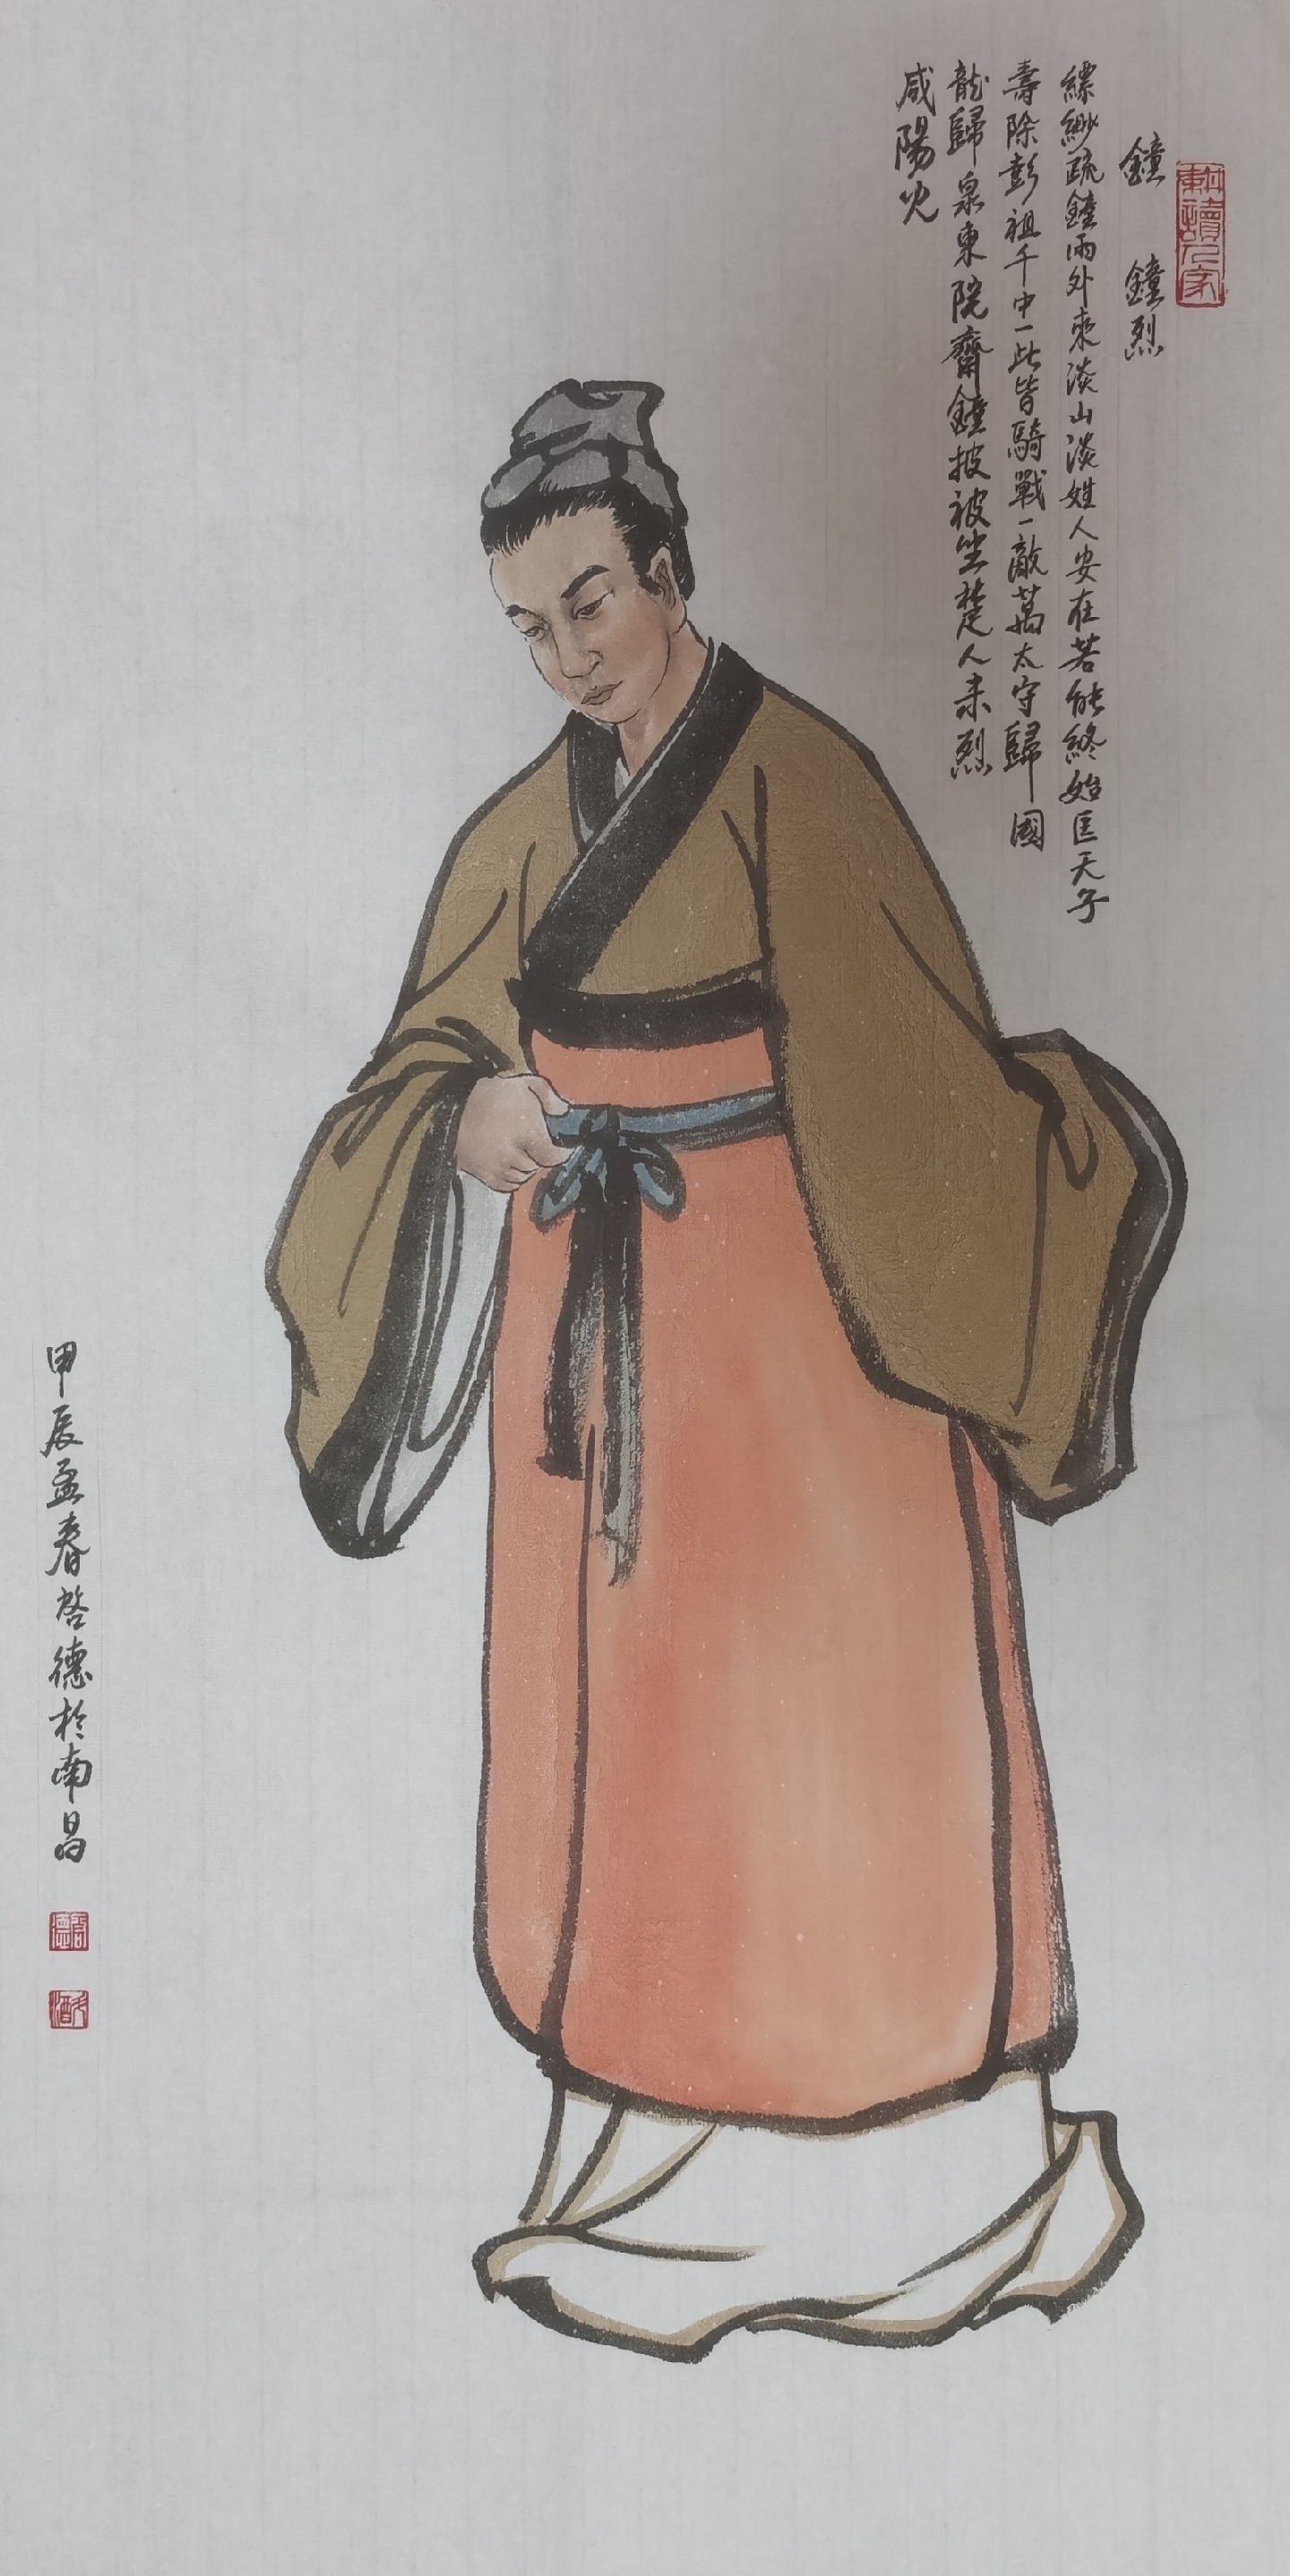 耕讀人家
鐘 鐘烈
縹緲疏鐘雨外來淡山淡姓人安在若能終始匡天子
壽除彭祖千中一此皆騎戰一敵萬太守歸國
龍歸泉東院齋鐘披被坐楚人未烈
咸陽火
甲辰孟春啓德於南昌
啓德